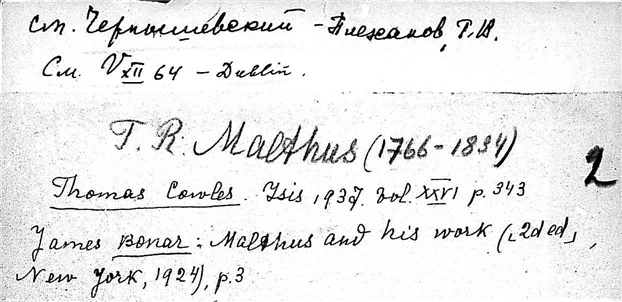 См. Чернышевский - Плеханов, Г.В.
См. V XII 64 - Dublin.
T. R. Malthus (1766 - 1834)
2
Thomas Cowles. Isis, 1937. vol. XXVI p. 343
James Bonar: Malthus and his work (2d ed,
New York, 1924), p. 3